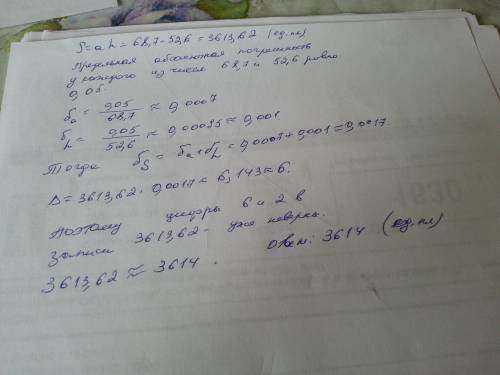 S=a h = 68,7 · 52,6 = 3613,62 (ед.пл)
Предельная абсолютная погрешность
у каждого из чисел 68,7 и 52,6 равна
0,05.
δa = 0,05/68,7 ≈ 0,0007
δh = 0,05/52,6 ≈ 0,00095 ≈ 0,001.
Тогда δS = δa+δh = 0,0007+0,001=0,0017.
Δ = 3613,62 · 0,0017 ≈ 6,143 ≈ 6.
Поэтому цифры 6 и 2 в
записи 3613,62 - уже неверна.
3613,62 ≈ 3614. Ответ: 3614 (ед.пл)